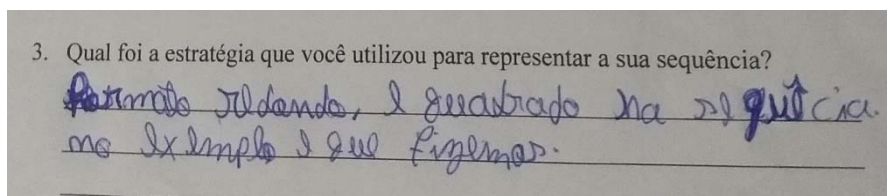 3. Qual foi a estratégia que você utilizou para representar a sua sequência?
Formato redondo, e quadrado na sequêcia.
no exemplo e que fizemos.